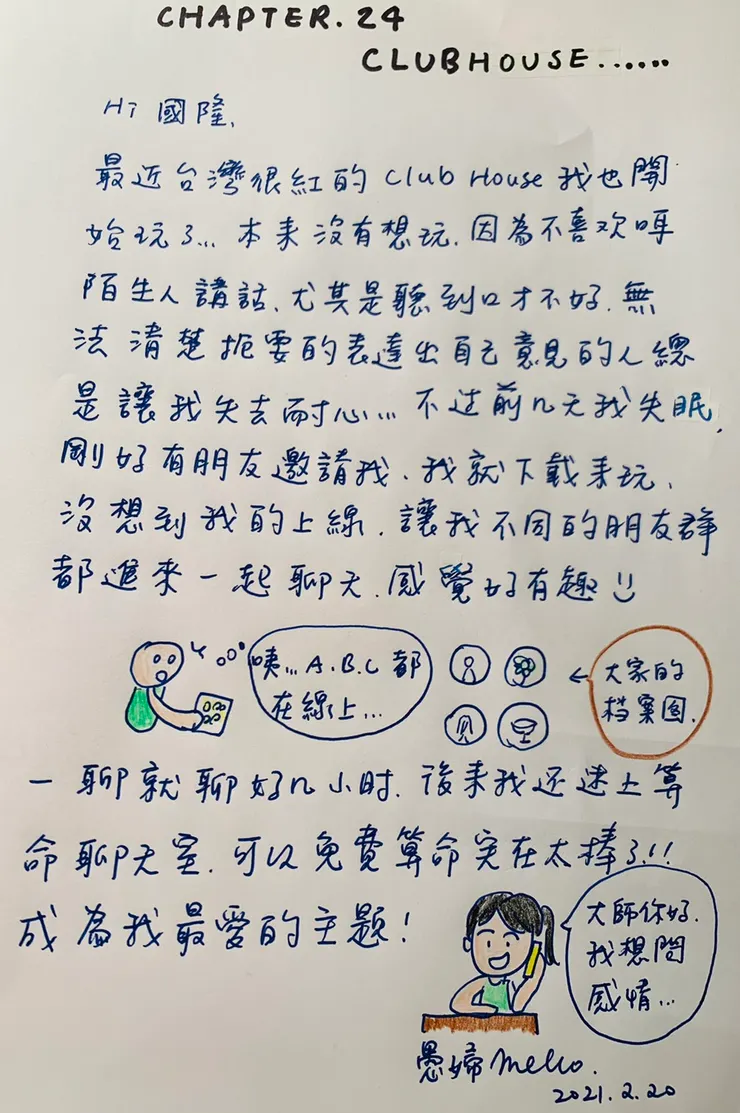 CHAPTER.24
CLUBHOUSE......
Hi 國隆,
最近台灣很紅的 Club House 我也開
始玩了... 本来没有想玩, 因為不喜欢哖
陌生人講話, 尤其是聽到口才不好, 無
法清楚扼要的表達出自己意見的人總
是讓我失去耐心... 不过前几天我失眠,
剛好有朋友邀請我、我就下載来玩、
没想到我的上線, 讓我不同的朋友群
都進來一起聊天, 感覺好有趣!!
咦... A.B.C 都
在線上...
← 大家的
档案图.
一聊就聊好几小时, 後来我还迷上算
命聊天室, 可以免費算命实在太棒了!!
成為我最愛的主題!
大師你好,
我想問
感情...
愚婦 Mello.
2021.2.20